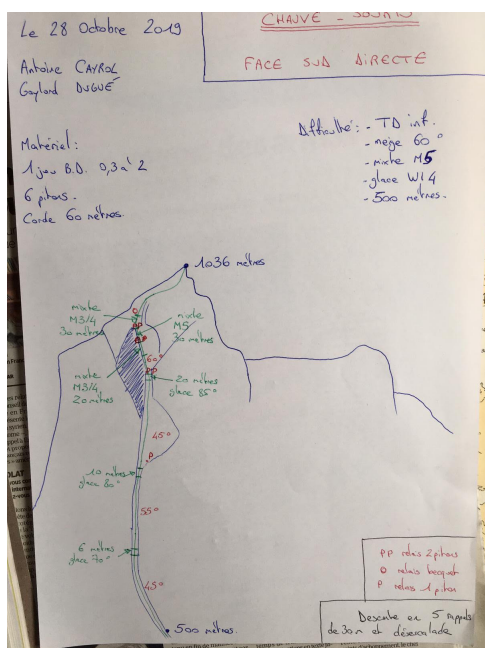 Le 28 Octobre 2019
CHAUVE - SOURIS
FACE SUD DIRECTE
Antoine CAYROL
Gaylord DUGUÉ
Matériel :
1 jeu B.D. 0,3 à 2
6 pitons.
Corde 60 mètres.
Difficulté : - TD inf.
- neige 60°
- mixte M5
- glace WI4
- 500 mètres.
1036 mètres
mixte
M3/4
30 mètres
mixte
M5
30 mètres
mixte
M3/4
20 mètres
60°
PP
20 mètres
glace 85°
45°
P
10 mètres
glace 80°
55°
6 mètres
glace 70°
45°
500 mètres.
PP relais 2 pitons
O relais becquet
P relais 1 piton
Descente en 5 rappels
de 30m et désescalade